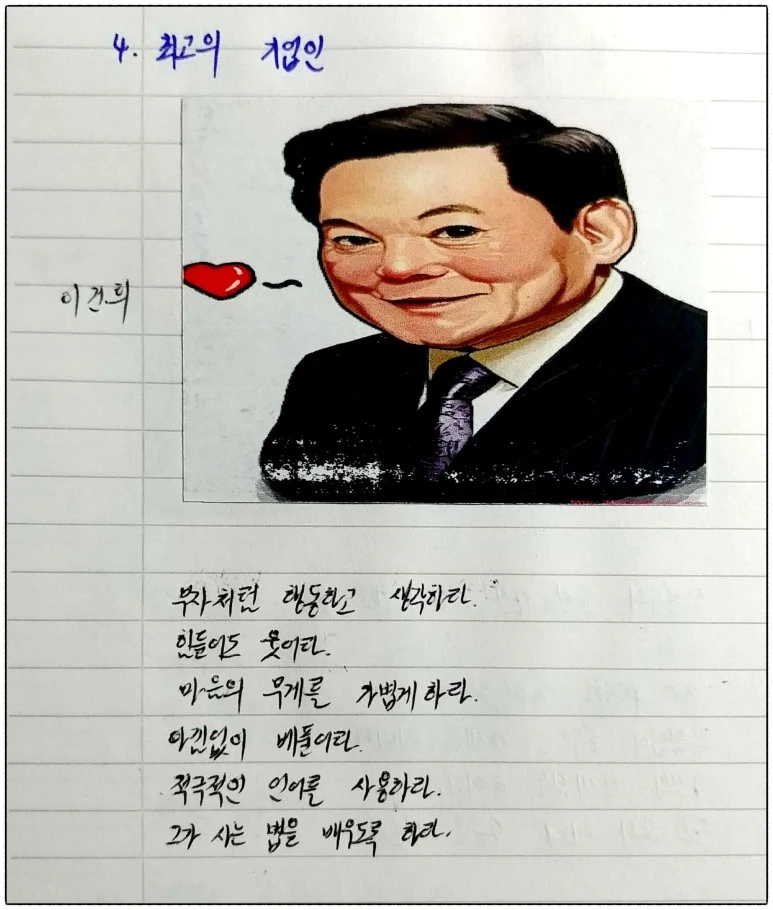 4. 최고의 기업인
이건희
부자처럼 행동하고 생각하라.
힘들어도 웃어라.
마음의 무게를 가볍게 하라.
아낌없이 베풀어라.
적극적인 언어를 사용하라.
그가 사는 법을 배우도록 하라.